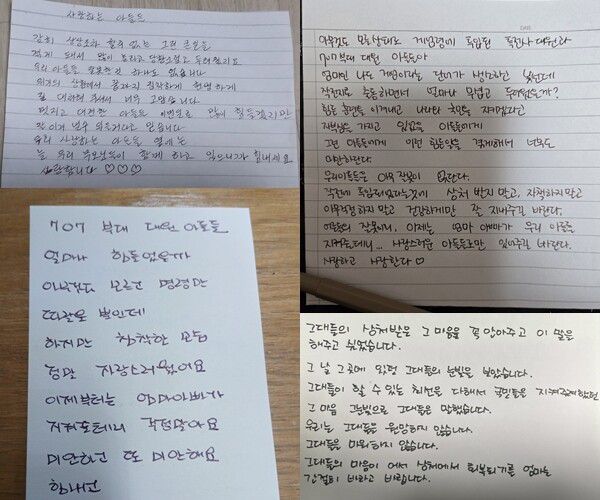 사랑하는 아들들
감히 상상조차 할수 없는 그런 큰일을
겪게 돼서 많이 놀라고 당황스럽고 두려웠지요
우리 아들들 잘못한것 하나도 없습니다
위기의 상황에서 끝까지 침착하게 현명하게
잘 대처해 주셔서 너무 고맙습니다
멋지고 대견한 아들들 이번일로 많이 힘들겠지만
우리 사랑하는 아들들 옆에는
늘 우리 부모님들이 함께 하고 있으니까 힘내세요
사랑합니다 ♡♡♡
아무것도 모른상태로 계엄령에 투입된 특전사 대원과
707부대 대원 아들들아
엄마인 나도 계엄이라는 단어가 생각하면 떨리는데
작전지로 출동하면서 얼마나 무섭고 두려웠을까?
힘든 훈련을 이겨내고 나라와 국민을 지켜왔다는
자부심을 가지고 있었을 아들들에게
그런 아들들에게 이런 힘든일을 겪게해서 너무도
미안하단다.
우리아들들은 아무 잘못이 없단다.
작전에 투입되었다는것에 상처 받지 말고, 자책하지말고
아무걱정하지 말고 건강하게만 잘 지내주길 바란다.
어른들의 잘못이니, 이제는 엄마 아빠가 우리 아들들
지켜줄테니... 사랑스러운 아들들로만 있어주길 바란다.
사랑하고 사랑한다♡
707 부대 대원 아들들
얼마나 힘들었을까
아무것도 모르고 명령만
따랐을 뿐인데
하지만 침착한 모습
정말 자랑스러웠어요
이제부터는 엄마아빠가
지켜줄테니 걱정말아요
미안하고 또 미안해요
힘내고
그대들의 상처받은 그 마음을 꼭 안아주고 이 말을
해주고 싶었습니다.
그 날 그곳에 있던 그대들의 눈빛을 보았습니다.
그대들이 할 수 있는 최선을 다해서 국민들을 지켜주려했던
그 마음 그눈빛으로 그대들을 말했습니다.
우리는 그대들을 원망하지 않습니다.
그대들을 미워하지 않습니다.
그대들의 마음이 어서 상처에서 회복되기를 엄마는
간절히 바라고 바랍니다.